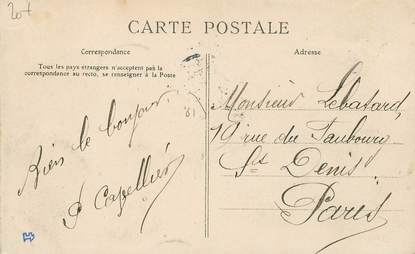 207
CARTE POSTALE
Correspondance
Tous les pays étrangers n'acceptent pas la
correspondance au recto, se renseigner à la Poste
Bien le bonjour
P Capellier
Adresse
Monsieur Lebatard,
19 rue du Faubourg
St Denis.
Paris